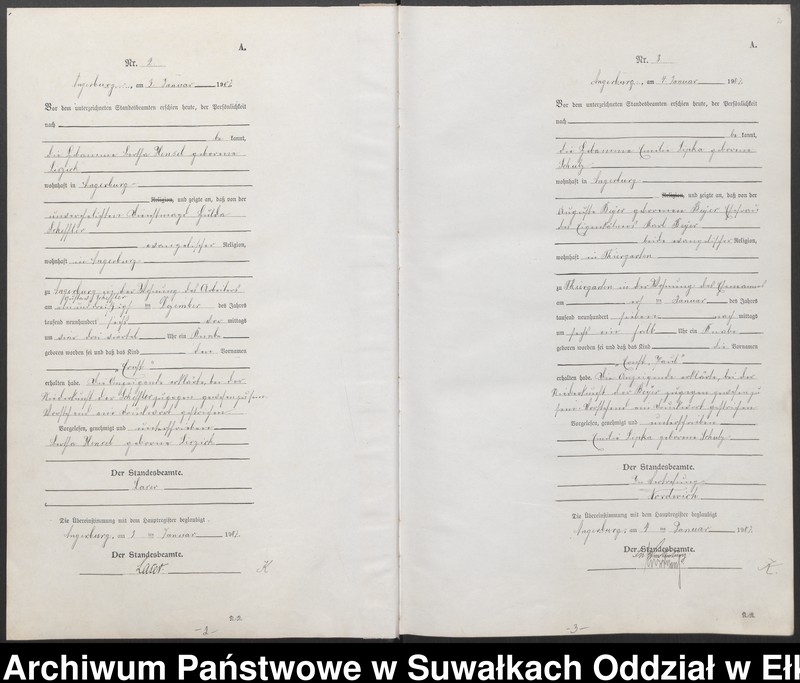 A.
Nr. 2
Angerburg, am 8 Januar 1907
Vor dem unterzeichneten Standesbeamten erschien heute, der Persönlichkeit
nach
be kannt,
die Hebamme geborene
wohnhaft in Angerburg
Religion, und zeigte an, daß von der
unverehelichten Dienstmagd
Scheffler
evangelischer Religion,
wohnhaft in Angerburg
zu Angerburg in der Wohnung des Arbeiters
Scheffler
am ten Dezember des Jahres
tausend neunhundert sechs mittags
um drei viertel Uhr ein Knabe
geboren worden sei und daß das Kind den Vornamen
"Ernst"
erhalten habe. Die Anzeigende erklärte, bei der
Niederkunft der Scheffler zugegen gewesen zu sein
Vorstehend ein Druckwort gestrichen
Vorgelesen, genehmigt und unterschrieben
geborene
Der Standesbeamte.
Laser
Die Übereinstimmung mit dem Hauptregister beglaubigt
Angerburg, am 8 ten Januar 1907
Der Standesbeamte.
K
-2-
A.
Nr. 3
Angerburg, am 9 Januar 1907
Vor dem unterzeichneten Standesbeamten erschien heute, der Persönlichkeit
nach
be kannt,
die Hebamme Emilie Lipka geborene
Schulz
wohnhaft in Angerburg
Religion, und zeigte an, daß von der
Auguste Beyer geborenen Beyer Ehefrau
des Eigentümers Karl Beyer
beide evangelischer Religion,
wohnhaft in Thiergarten
zu Thiergarten in der Wohnung des Ehemannes
am ten Januar des Jahres
tausend neunhundert sieben nach mittags
um sechs ein halb Uhr ein Knabe
geboren worden sei und daß das Kind die Vornamen
"Ernst Paul"
erhalten habe. Die Anzeigende erklärte, bei der
Niederkunft der Beyer zugegen gewesen zu
sein. Vorstehend ein Druckwort gestrichen
Vorgelesen, genehmigt und unterschrieben
Emilie Lipka geborene Schulz
Der Standesbeamte.
In Vertretung
Nordwich
Die Übereinstimmung mit dem Hauptregister beglaubigt
Angerburg, am 9 ten Januar 1907
Der Standesbeamte.
In Vertretung
-3-
Archiwum Państwowe w Suwałkach Oddział w Ełk